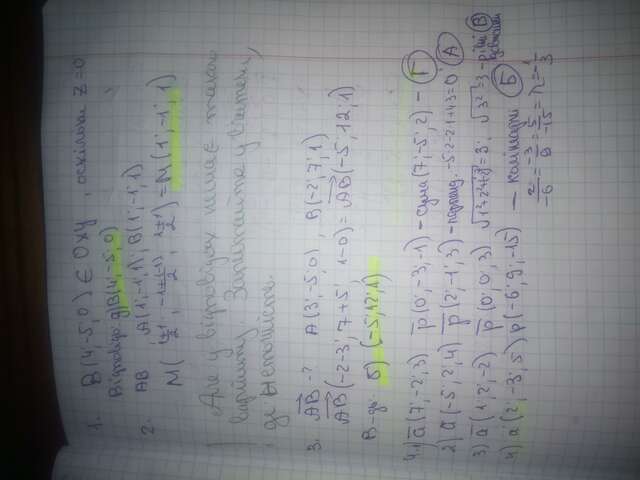 1. B(4;-5;0) ∈ Oxy, оскільки z=0
Відповідь: д) B(4;-5;0)
2. AB A(1;-1;1); B(1;-1;1)
M(1+1/2; -1+(-1)/2; 1+1/2) = M(1;-1;1)
Але у відповідях немає такого
варіанту. Запитайте у вчителя,
де неточність.
3. AB-? A(3;-5;0), B(-2;7;1)
AB(-2-3; 7+5; 1-0) = AB(-5;12;1)
В-дь: б) (-5;12;1)
4. 1) a(7;-2;3) p(0;-3;-1) - сума (7;-5;2) - Г
2) a(-5;2;4) p(2;-1;3) - перпенд. -5·2-2·1+4·3=0 А
3) a(1;2;-2) p(0;0;3) √1²+2²+2²=3; √3²=3 - рівні довжини В
4) a(2;-3;5) p(-6;9;-15) - колінеарні Б
2/-6 = -3/9 = 5/-15 = -1/3